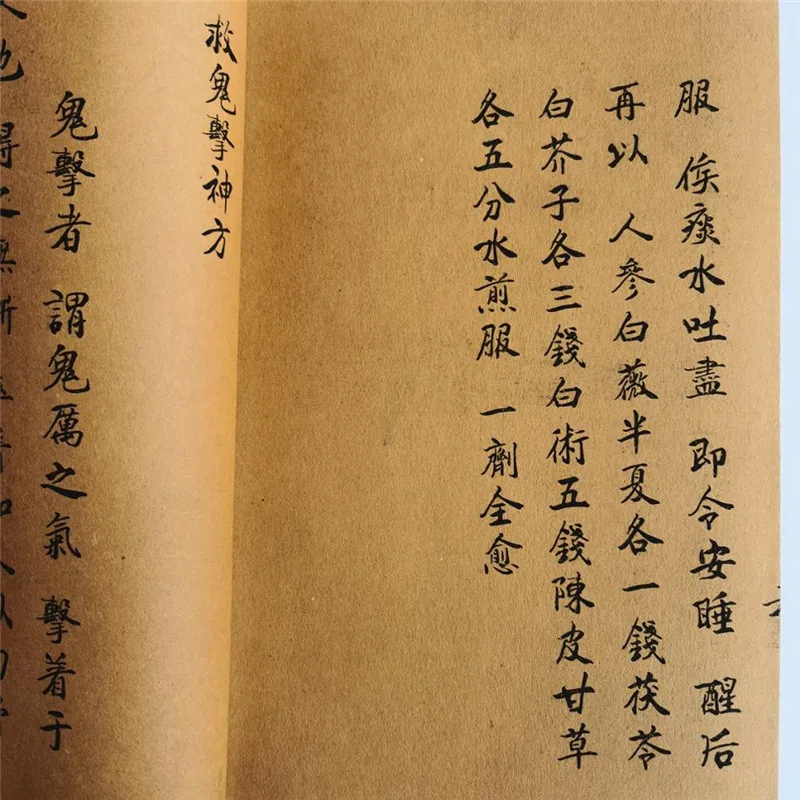 服 俟痰水吐盡 即令安睡 醒后
再以 人參白薇半夏各一錢茯苓
白芥子各三錢白術五錢陳皮甘草
各五分水煎服 一劑全愈
救鬼擊神方
鬼擊者 謂鬼厲之氣 擊着于